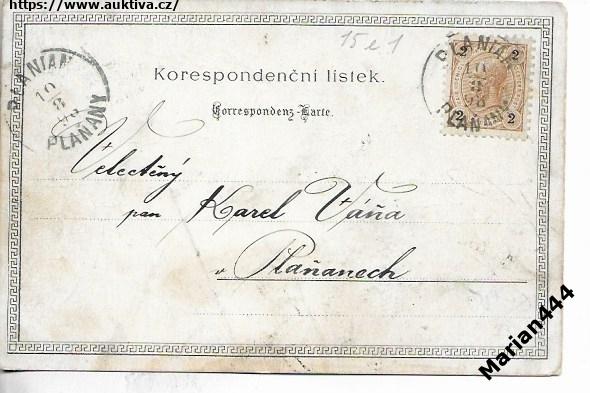 https://www.auktiva.cz/
15 e 1
PLANIAN
10
8
98
PLAŇANY
PLANIAN
10
8
98
PLAŇANY
2 2
2 2
Korespondenční lístek.
Correspondenz-Karte.
Velectěný
pan Karel Váňa
v Plaňanech
Marian444